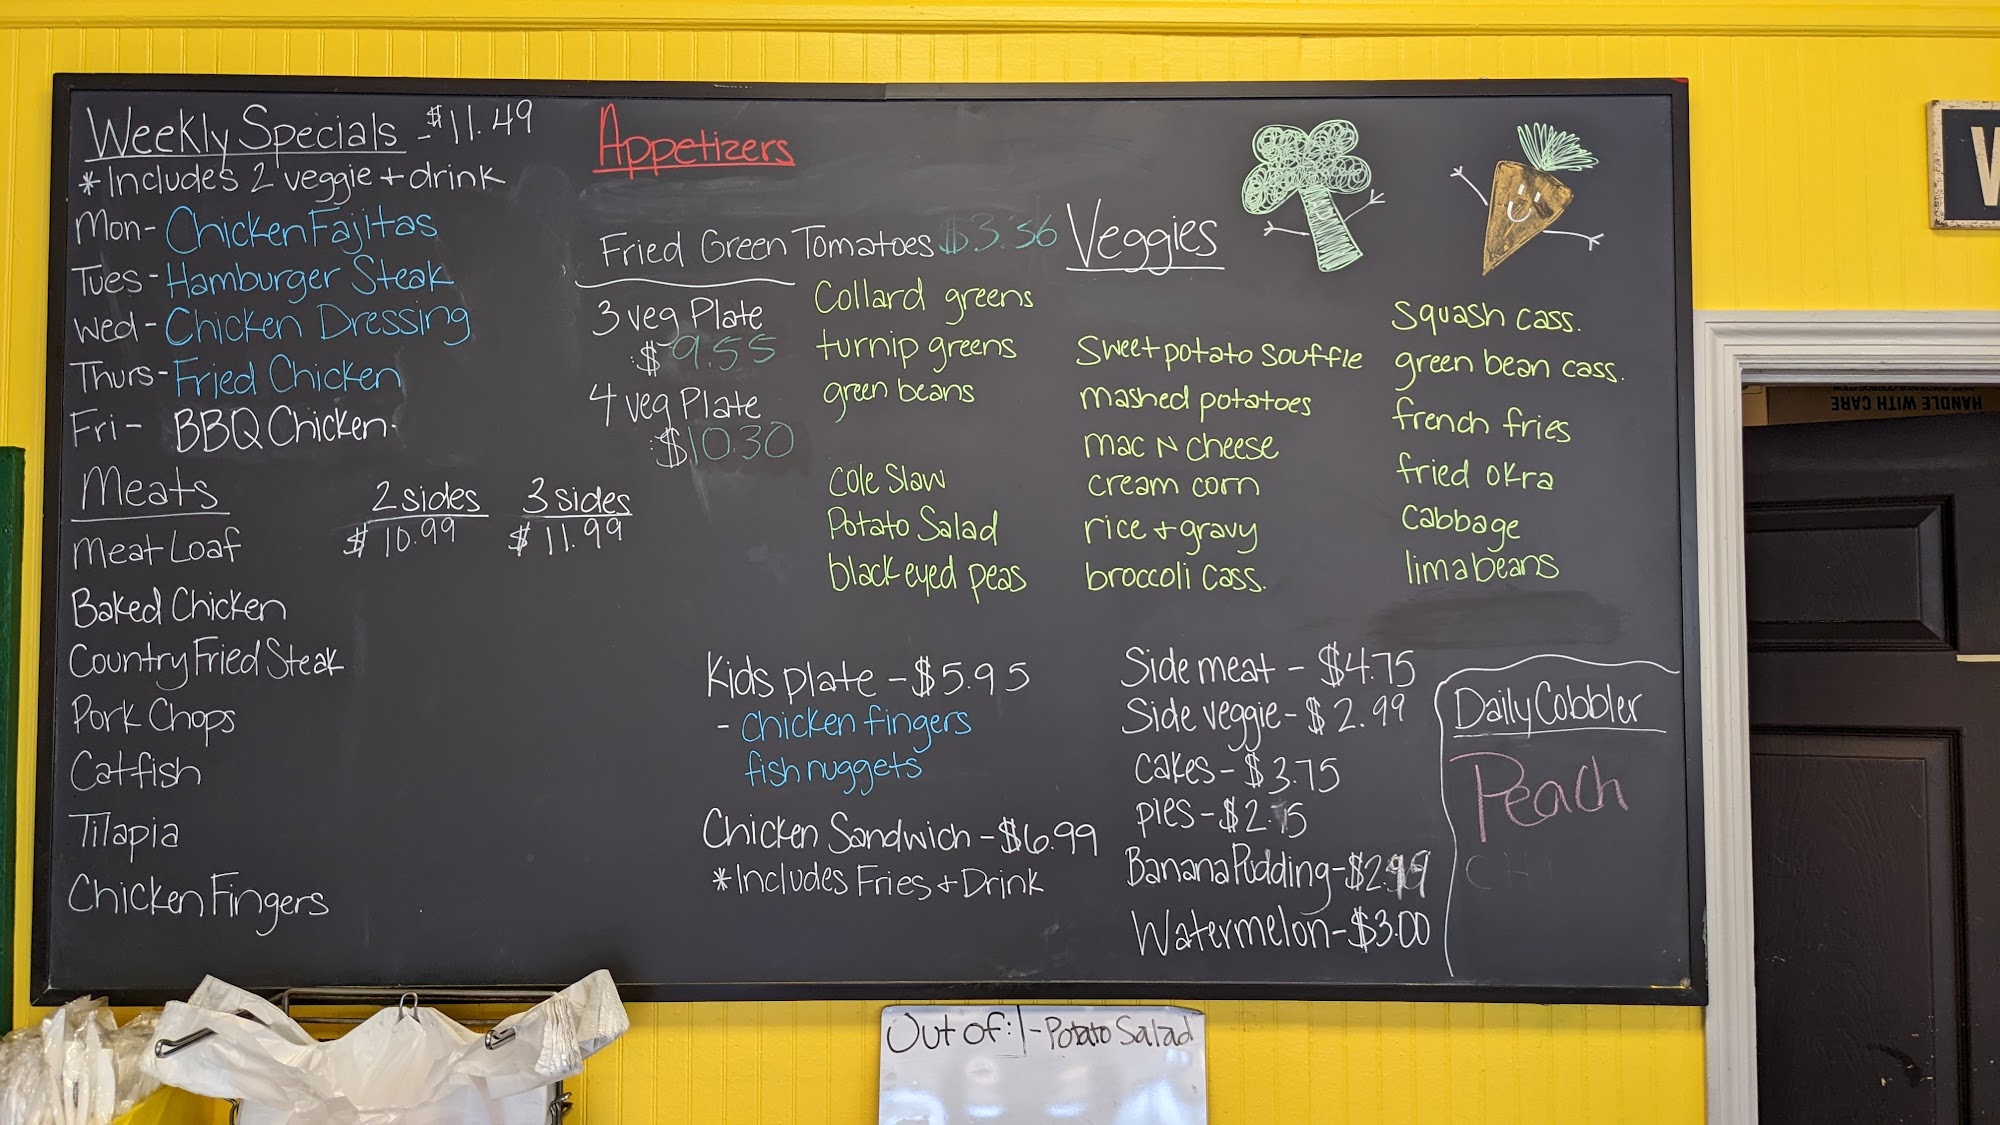 Weekly Specials - $11.49
*Includes 2 veggie + drink
Mon- Chicken Fajitas
Tues- Hamburger Steak
Wed- Chicken Dressing
Thurs- Fried Chicken
Fri- BBQ Chicken
Meats 2 sides 3 sides
Meat Loaf $10.99 $11.99
Baked Chicken
Country Fried Steak
Pork Chops
Catfish
Tilapia
Chicken Fingers
Appetizers
Fried Green Tomatoes $3.36
3 veg Plate
$9.55
4 veg Plate
$10.30
Veggies
Collard greens
turnip greens
green beans
Cole Slaw
Potato Salad
black eyed peas
Sweet potato souffle
mashed potatoes
mac N cheese
cream corn
rice + gravy
broccoli cass.
Squash cass.
green bean cass.
french fries
fried okra
Cabbage
lima beans
Kids plate - $5.95
- chicken fingers
fish nuggets
Chicken Sandwich - $6.99
*Includes Fries + Drink
Side meat - $4.75
Side veggie - $2.99
Cakes - $3.75
pies - $2.75
Banana Pudding - $2.99
Watermelon - $3.00
Daily Cobbler
Peach
Out of: 1- Potato Salad
HANDLE WITH CARE